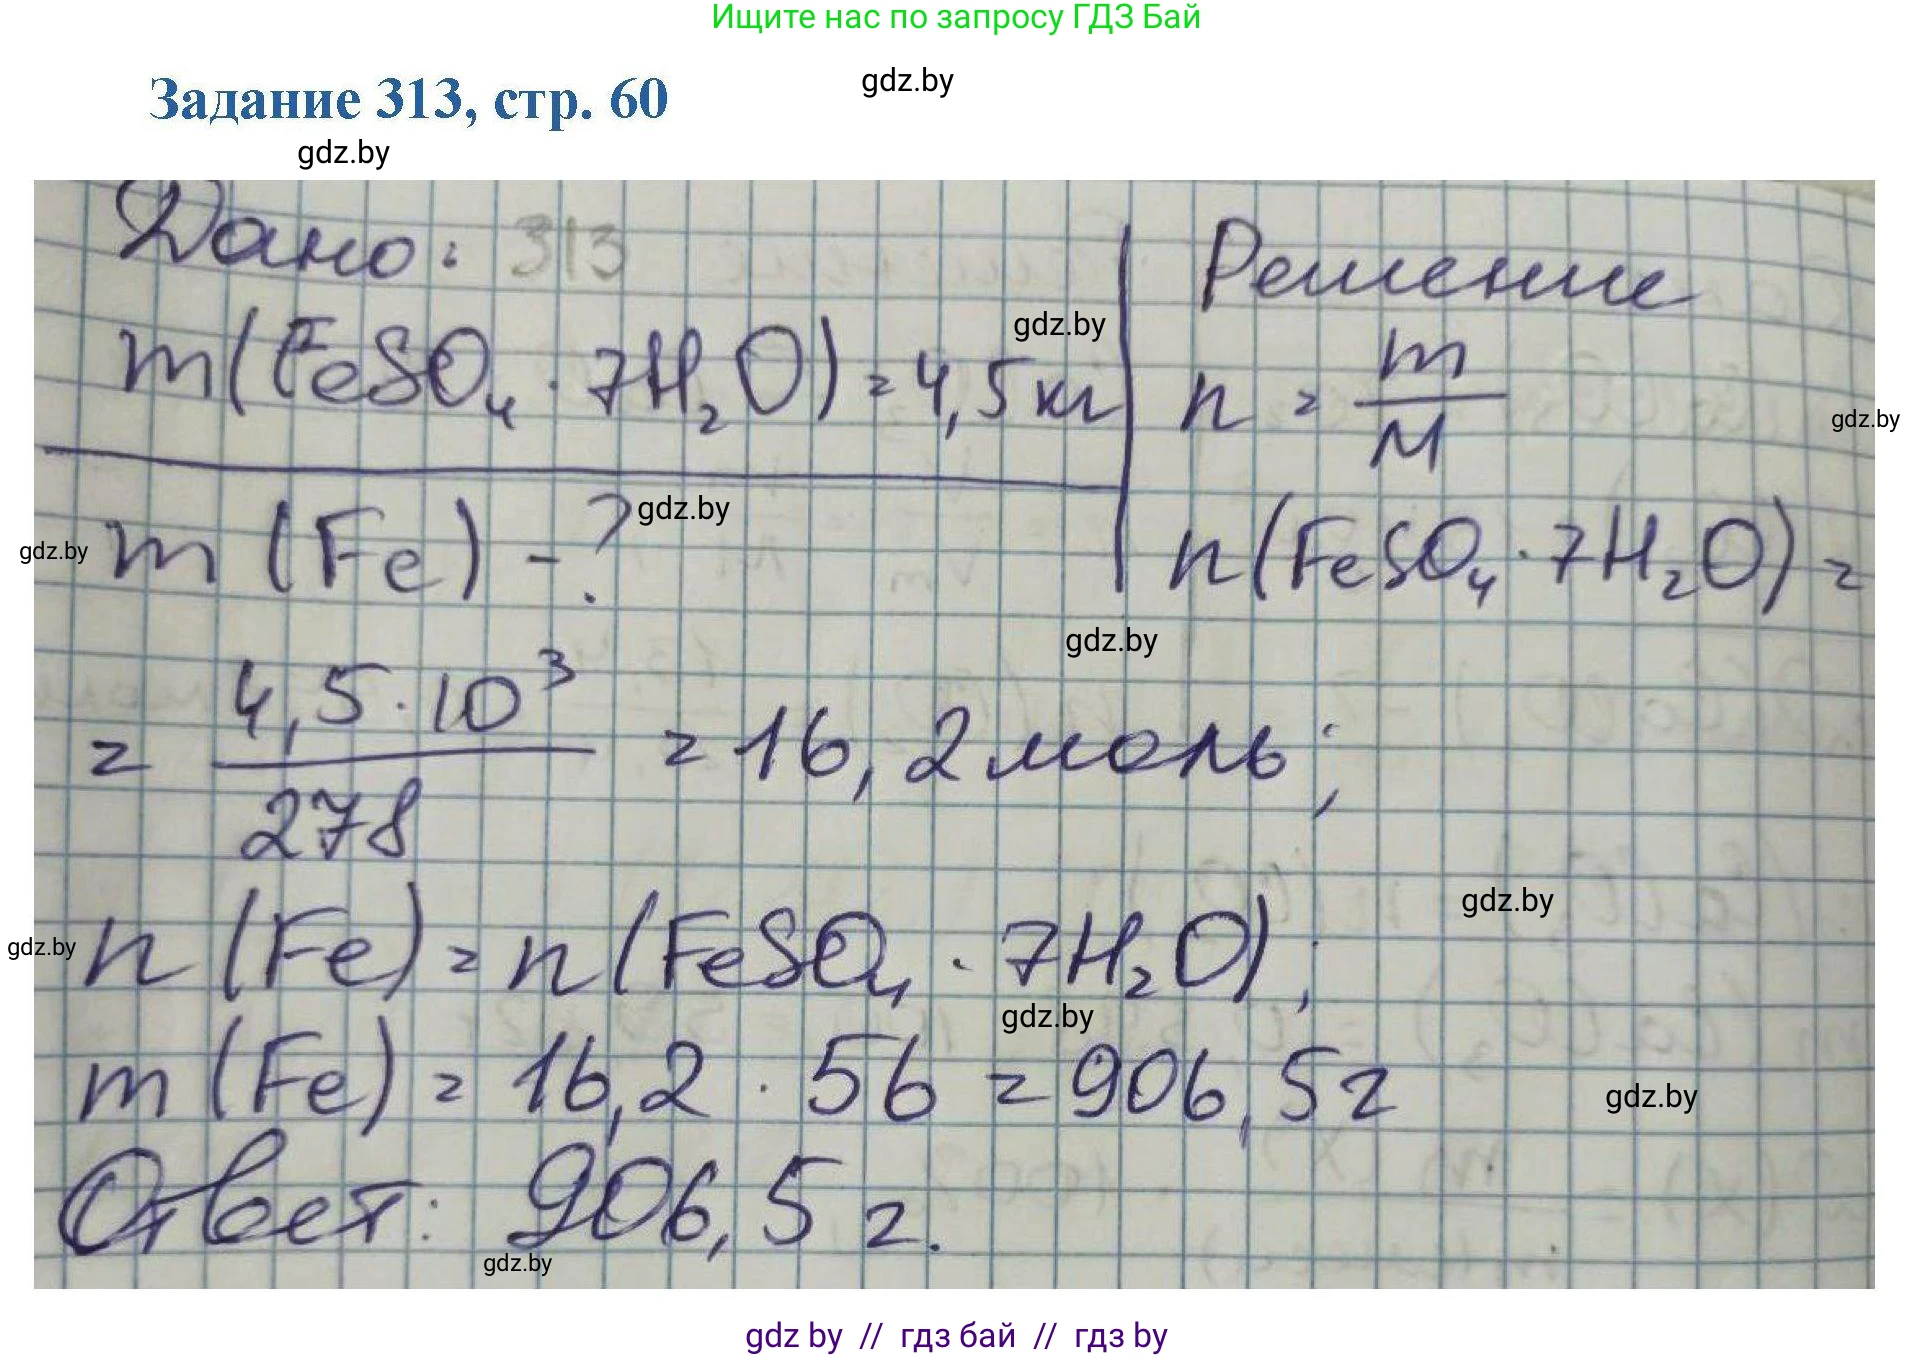 Ищите нас по запросу ГДЗ Бай
Задание 313, стр. 60
gdz.by
gdz.by
Дано: 313
m(FeSO₄ · 7H₂O) = 4,5 кг
m (Fe) - ?
Решение
n = m/M
n(FeSO₄ · 7H₂O) =
= 4,5 · 10³/278 = 16,2 моль;
n (Fe) = n (FeSO₄ · 7H₂O);
m (Fe) = 16,2 · 56 = 906,5 г
Ответ: 906,5 г.
gdz.by
gdz.by
gdz.by
gdz.by
gdz.by
gdz.by
gdz.by
gdz.by
gdz.by
gdz.by
gdz by // гдз бай // гдз by